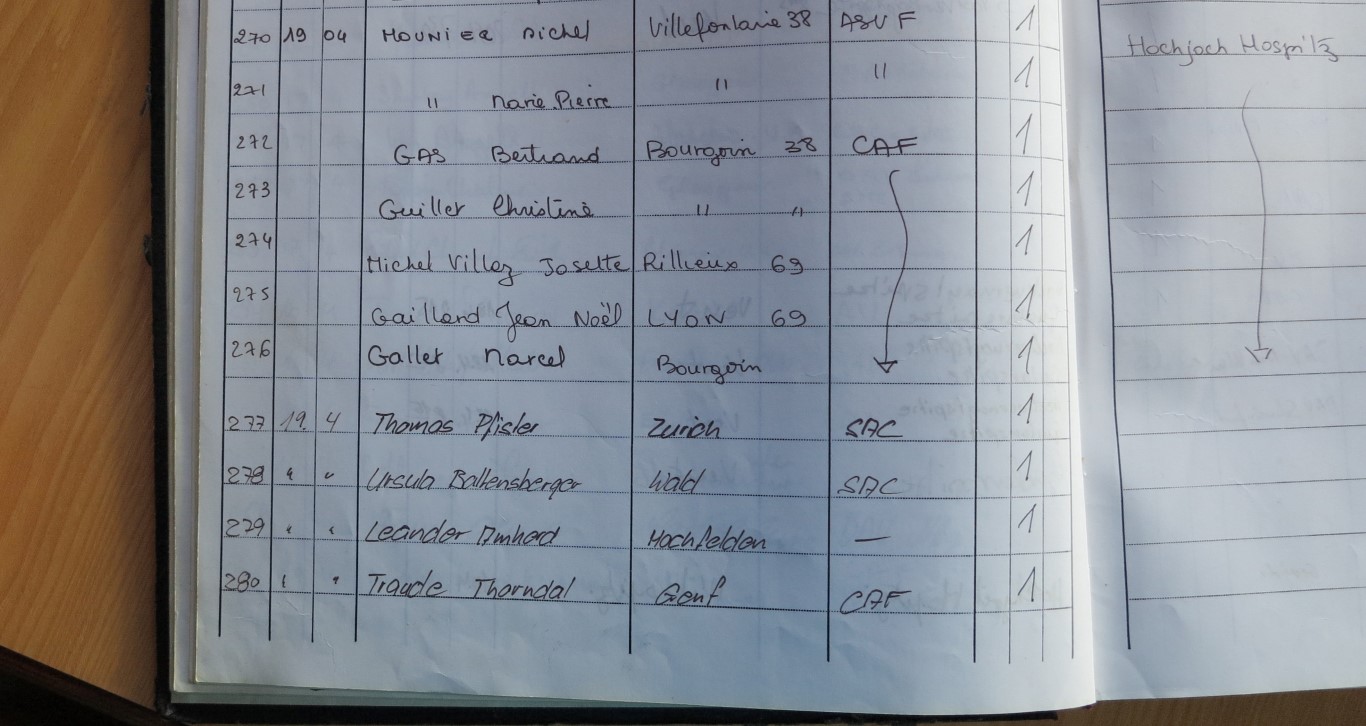 270 19 04 MOUNIER Michel Villefontaine 38 ASVF 1 Hochjoch Hospiz
271 " Marie Pierre " " 1
272 GAS Bertrand Bourgoin 38 CAF 1
273 Guillet Christine " " 1
274 Michel Villaz Josette Rillieux 69 1
275 Gaillard Jean Noël LYON 69 1
276 Gallet Marcel Bourgoin 1
277 19. 4 Thomas Pfister Zürich SAC 1
278 " " Ursula Baltensberger Wald SAC 1
279 " " Leander Amherd Hochfelden — 1
280 " " Traude Thorndal Genf CAF 1